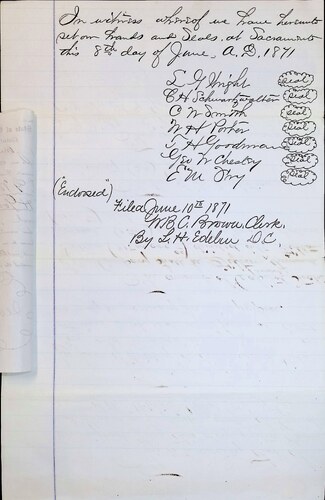 In witness whereof we have hereunto
set our hands and Seals, at Sacramento
this 8th day of June, A.D. 1871
L G Wright Seal
C H Schwartz Seal
C W Smith Seal
W H Porter Seal
T H Goodman Seal
Geo W Chesley Seal
E M Fry Seal
("Endorsed")
Filed June 10th 1871
W.B.C. Brown, Clerk.
By L. H. D.C.